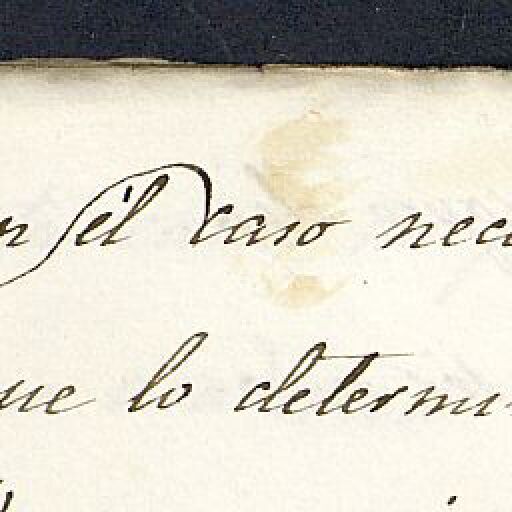 n él caso nece
ue lo determi